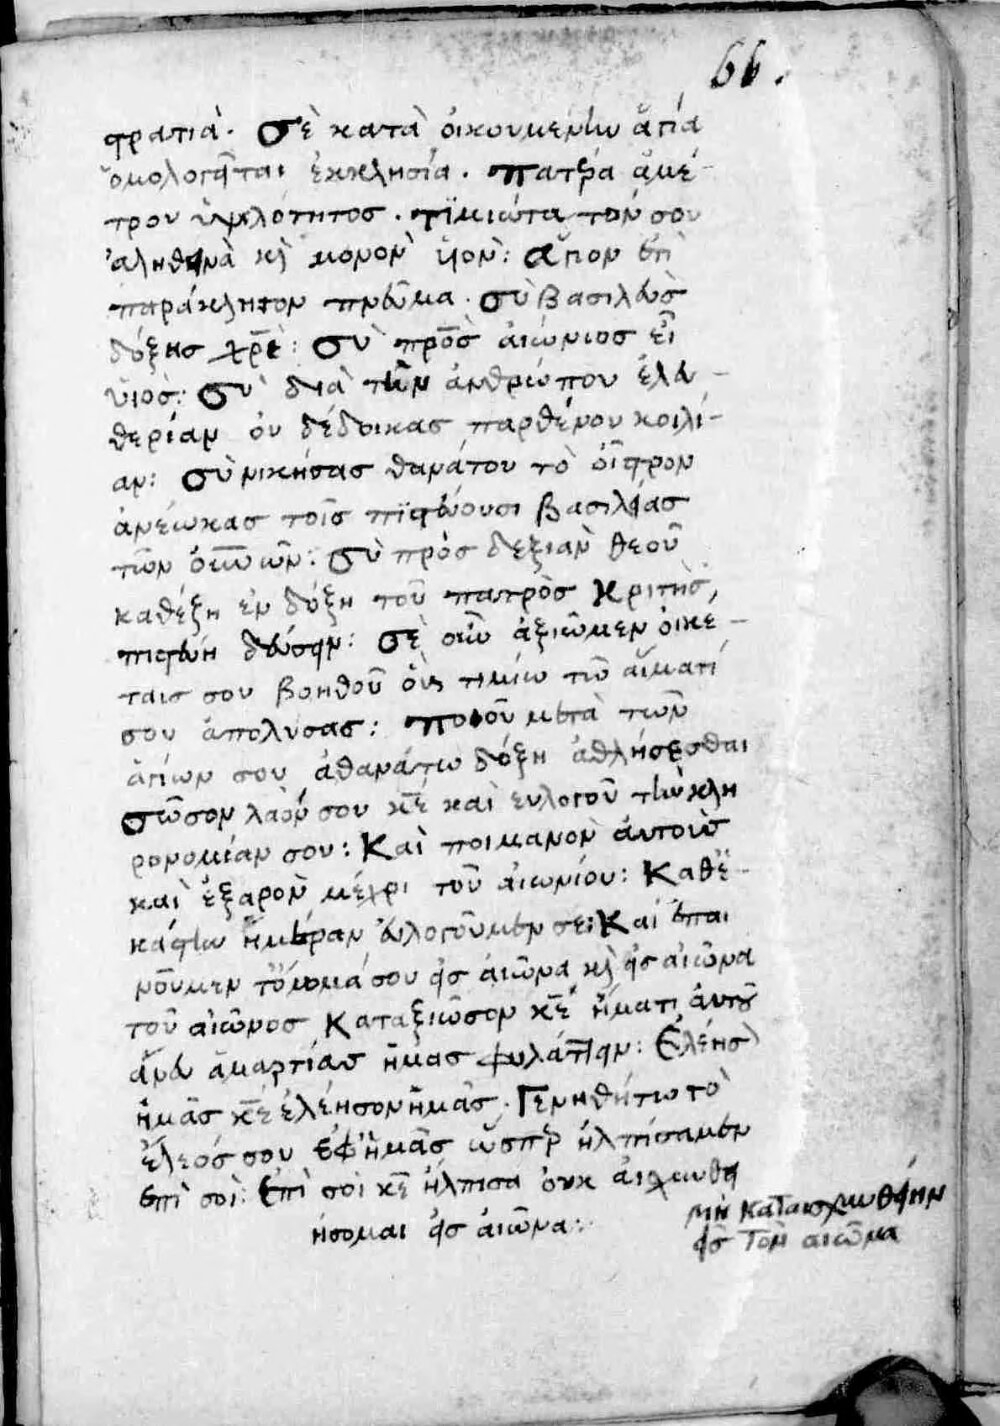 66.
στρατιά. Σὲ κατὰ οἰκουμένην ἁγία
ὁμολογεῖται ἐκκλησία. πατέρα ἀμέ-
τρου ὑψιλότητος. τϊμιώτατον σου
ἀληθεινὰ κὶ μονον ὑϊον: ἅγιον ἐπὶ
παράκλητον πνεῦμα. σὺ βασιλεὺς
δόξης χρὲ: Σὺ πρὸς ἀιώνιος εἶ
ὑϊος: Σὺ διὰ τὴν ἀνθρώπου ἐλευ-
θερίαν ὀυ δέδοικας παρθένου κοιλί-
αν: Σὺ νικήσας θανάτου τὸ οἶστρον
ἀνέωκας τοῖς πϊστεύουσι βασιλείας
τῶν
καθέξη ἐν δόξη τοῦ πατρὸς Κριτὴς,
Σὲ οὖν ἀξιῶμεν ὀικέ-
ταις σου βοηθοῦ οὓς τιμίω τῶ αἵματί
σου ἀπολύσας: ποιοῦ μετὰ τῶν
ἁγίων σου ἀθανάτω δόξη ἀθλήσεσθαι
Σῶσον λαόν σου κε καὶ ευλογοῦ τὴν κλη
ρονομίαν σου: Καὶ ποιμανὸν ἀυτοὺς
καὶ ἐξαρὸν μέχρι τοῦ αἰωνίου: Καθ' ἑ-
κάστην ἡμέραν ἐυλογοῦμεν σε: Καί ἐπαι
νοῦμεν τὄνομά σου εἰς ἀιῶνα κὶ εἰς αἰῶνα
τοῦ αἰῶνος Καταξιῶσον κε ἤματι ἀυτοῦ
ἄνευ ἁμαρτίας ἡμας φυλάττειν: Ἐλέησ
ἡμᾶς κε ἐλέησον ἡμᾶς. Γενηθήτω τὸ
ἔλεός σου ἐφ' ἡμᾶς ὥσπερ ἠλπίσαμεν
ἐπὶ σοί: Ἐπὶ σοὶ κε ἤλπισα ὀυκ ἀισχυνθη
ήσομαι εἰς ἀιῶνα:
μὴ καταισχυνθείην
εἰς τὸν αἰῶνα